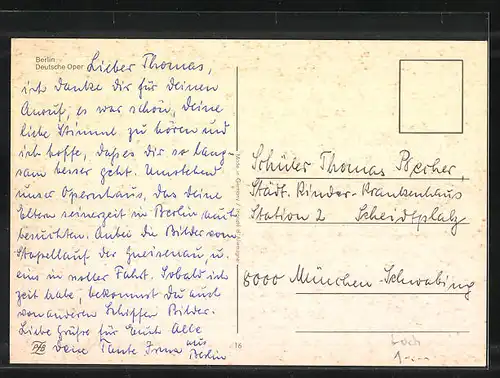 Berlin
Deutsche Oper
Lieber Thomas,
ich danke dir für deinen
Anruf, es war schön, deine
liebe Stimme zu hören und
ich hoffe, dass es dir so lang-
sam besser geht. Umstehend
unser Opernhaus, das deine
Eltern seinerzeit in Berlin auch
besuchten. Anbei die Bilder vom
Stapellauf der Gneisenau, u.
eins in voller Fahrt. Sobald ich
Zeit habe, bekommst du auch
von anderen Schiffen Bilder.
Liebe Grüße für Euch Alle
Deine Tante Irma aus
Berlin
16
Schüler Thomas
Städt. Kinder-Krankenhaus
Station 2 Scheidtplatz
8000 München-Schwabing
Loch
1.--